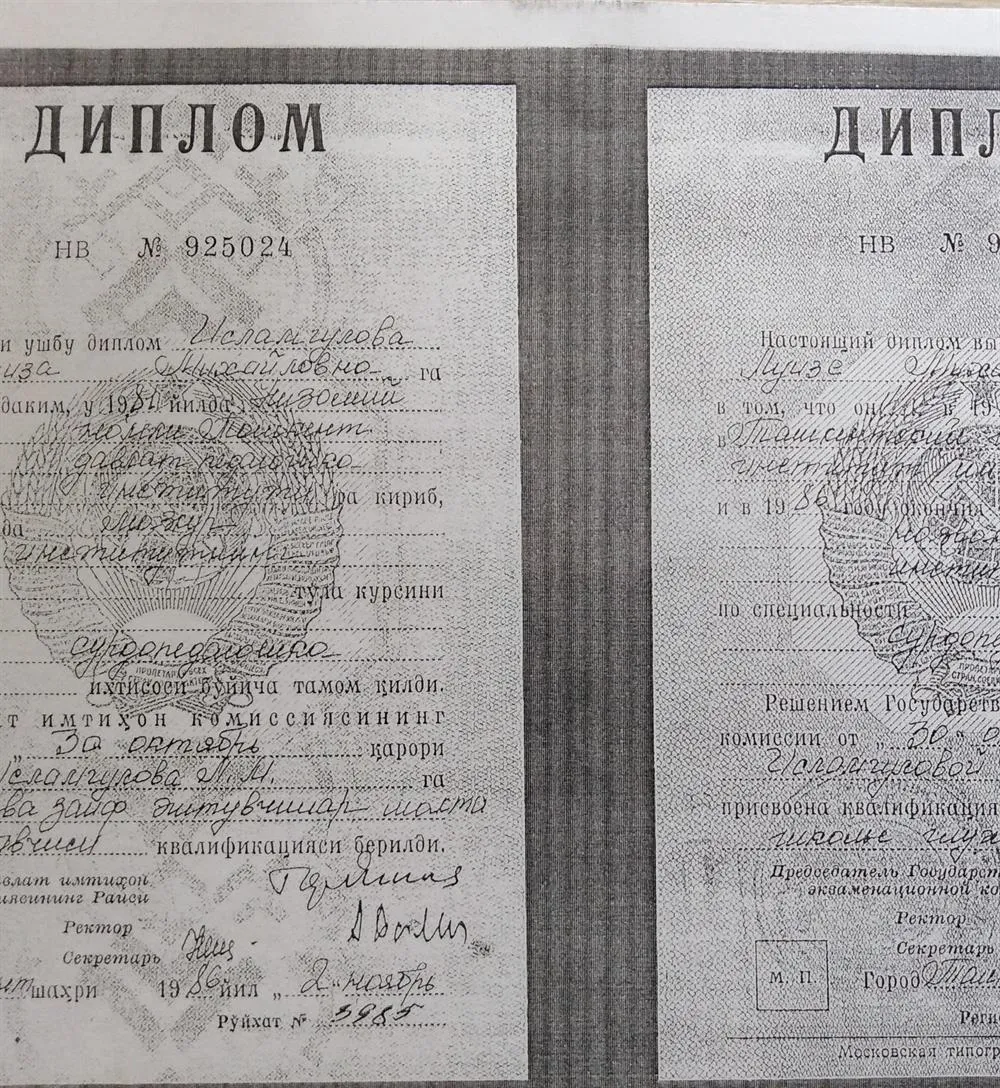 ДИПЛОМ
НВ № 925024
и ушбу диплом Исламгулова
иза Михайловна га
даким, у 1981 йилда Низомий
номли Тошкент
давлат педагогика
институти га кириб,
да мазкур
институтнинг
тўла курсини
сурдопедагогика
ихтисоси бўйича тамом қилди.
т имтиҳон комиссиясининг
„ 30 октябрь қарори
Исламгулова Л. М. га
ва заиф эшитувчилар
квалификацияси берилди.
влат имтиҳон
иясининг Раиси
Ректор
Секретарь
шаҳри 1986 йил „ 2 „ ноябрь
Рўйхат № 3985
ДИПЛ
НВ № 9
Настоящий диплом вы
Луизе Миха
в том, что он а в 19
в Ташкентский
институт им
и в 1986 году окончил
назван
инсти
по специальности
сурдоп
Решением Государств
комиссии от „ 30 “ о
Исламгуловой
присвоена квалификация
школы глух
Председатель Государст
экзаменационной ко
Ректор
Секретарь
М. П.
Город Таш
Реги
Московская типогр
ПРОЛЕТАР
СТРАН, СОЕД